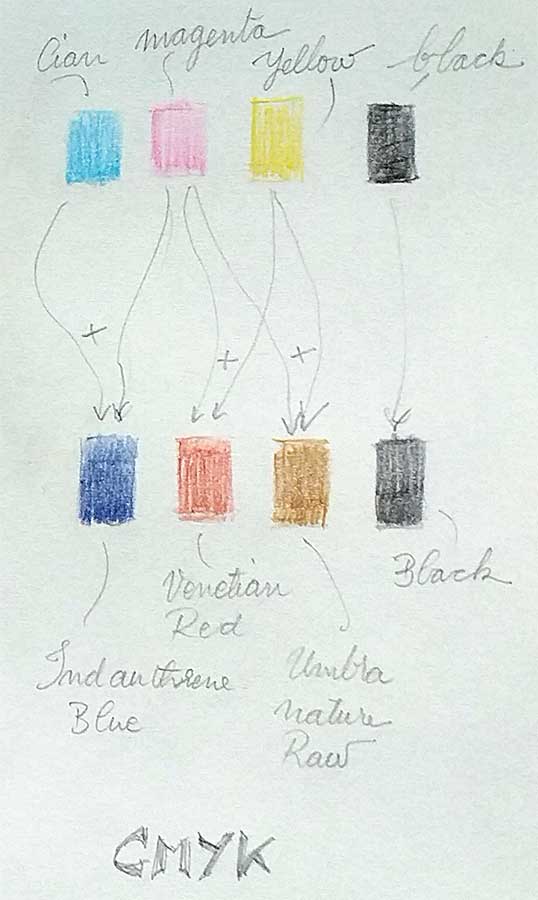 Cian magenta yellow black
+ + +
Venetian
Red
Black
Indanthrene
Blue
Umbra
nature
Raw
CMYK